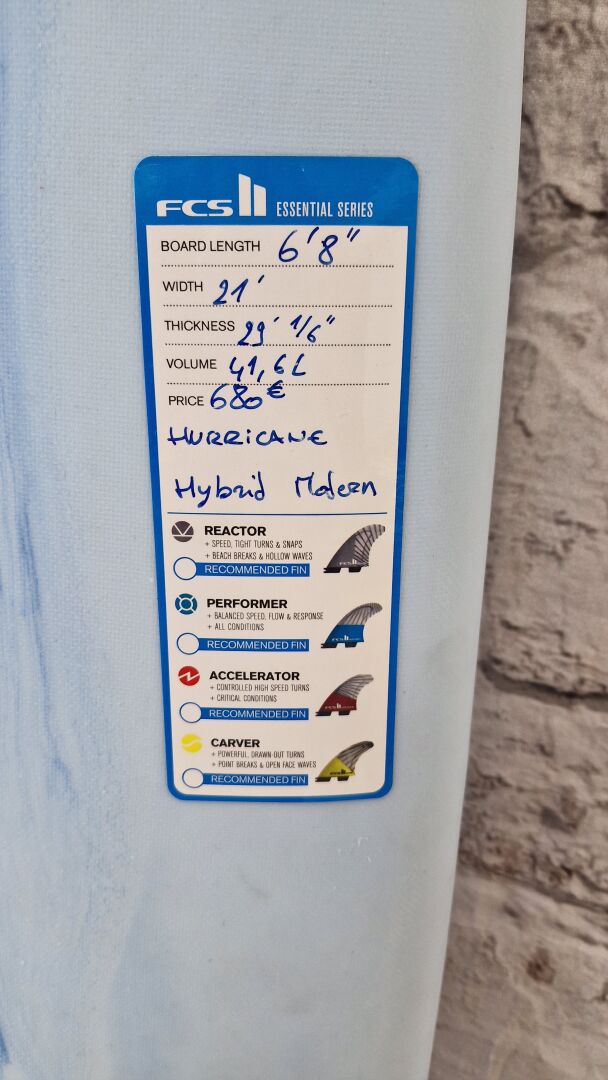 FCS II ESSENTIAL SERIES
BOARD LENGTH 6'8"
WIDTH 21'
THICKNESS 29' 1/6"
VOLUME 41,6L
PRICE 680€
HURRICANE
Hybrid Modern
REACTOR
+ SPEED, TIGHT TURNS & SNAPS
+ BEACH BREAKS & HOLLOW WAVES
RECOMMENDED FIN
FCS II
PERFORMER
+ BALANCED SPEED, FLOW & RESPONSE
+ ALL CONDITIONS
RECOMMENDED FIN
FCS II
ACCELERATOR
+ CONTROLLED HIGH SPEED TURNS
+ CRITICAL CONDITIONS
RECOMMENDED FIN
FCS II
CARVER
+ POWERFUL, DRAWN-OUT TURNS
+ POINT BREAKS & OPEN FACE WAVES
RECOMMENDED FIN
FCS II